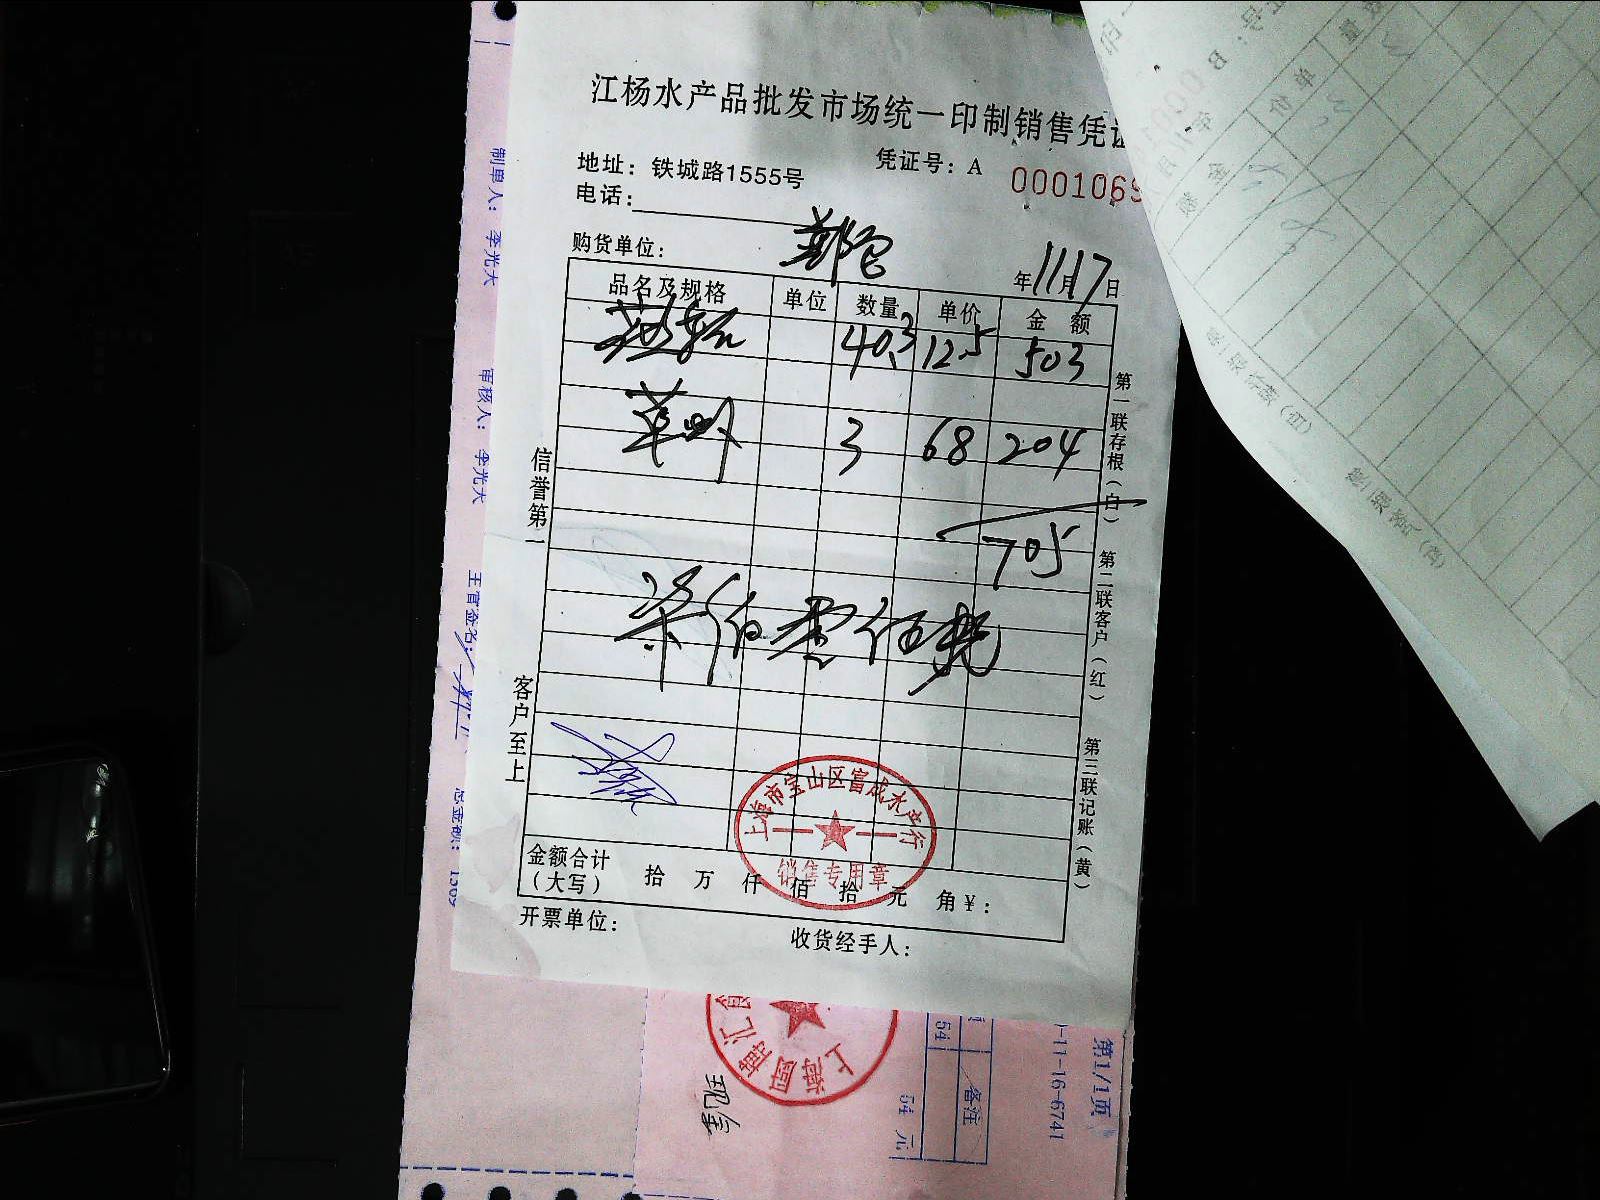 江杨水产品批发市场统一印制销售凭证
地址：铁城路1555号
凭证号：A 0001069
电话：
购货单位：
郑
年11月17日
品名及规格 单位 数量 单价 金额
40.3 12.5 503
草虾 3 68 204
705
柒佰零伍元
信誉第一
客户至上
第一联存根（白）
第二联客户（红）
第三联记账（黄）
上海市宝山区富成水产行
销售专用章
金额合计
（大写） 拾 万 仟 佰 拾 元 角 ¥：
开票单位：
收货经手人：
制单人：李光大
审核人：李光大
主管签名：
总金额：
第1/1页
-11-16-6741
备注
54
54 元
上海
现金
号：B
单价